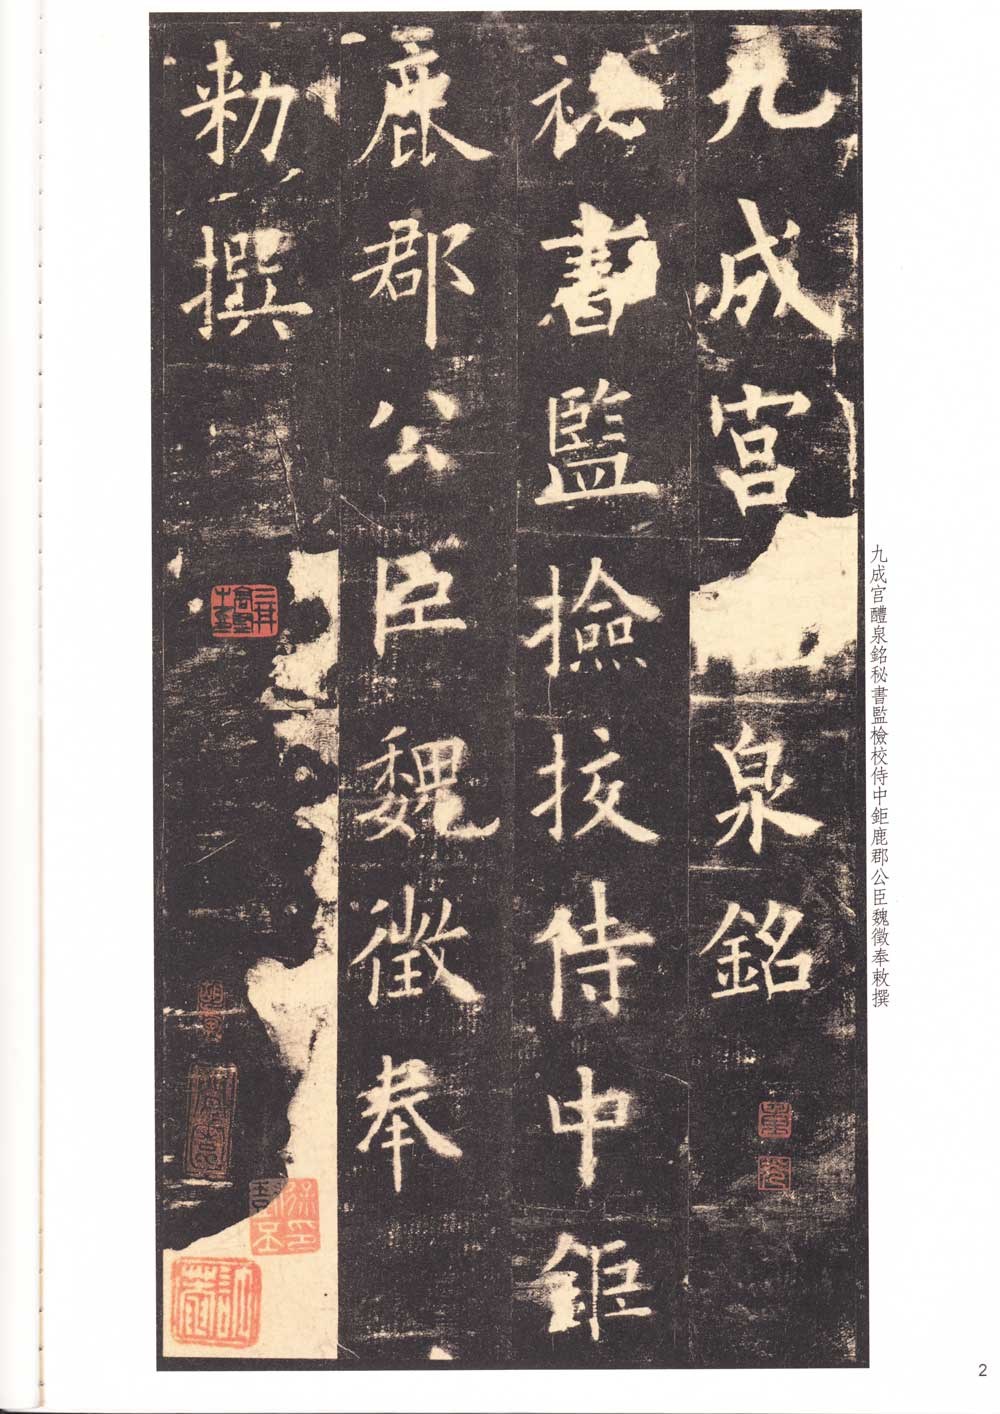 九成宮泉銘
秘書監撿挍侍中鉅
鹿郡公臣魏徵奉
勑撰
九成宮醴泉銘秘書監檢校侍中鉅鹿郡公臣魏徵奉敕撰
2